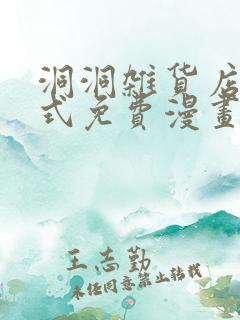 洞洞雑货店
式免費漫畫
王志勤
未经同意禁止转载